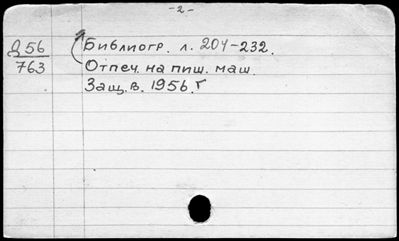 -2-
Д56
763
Библиогр. л. 204-232.
Отпеч. на пиш. маш.
Защ. в. 1956. г